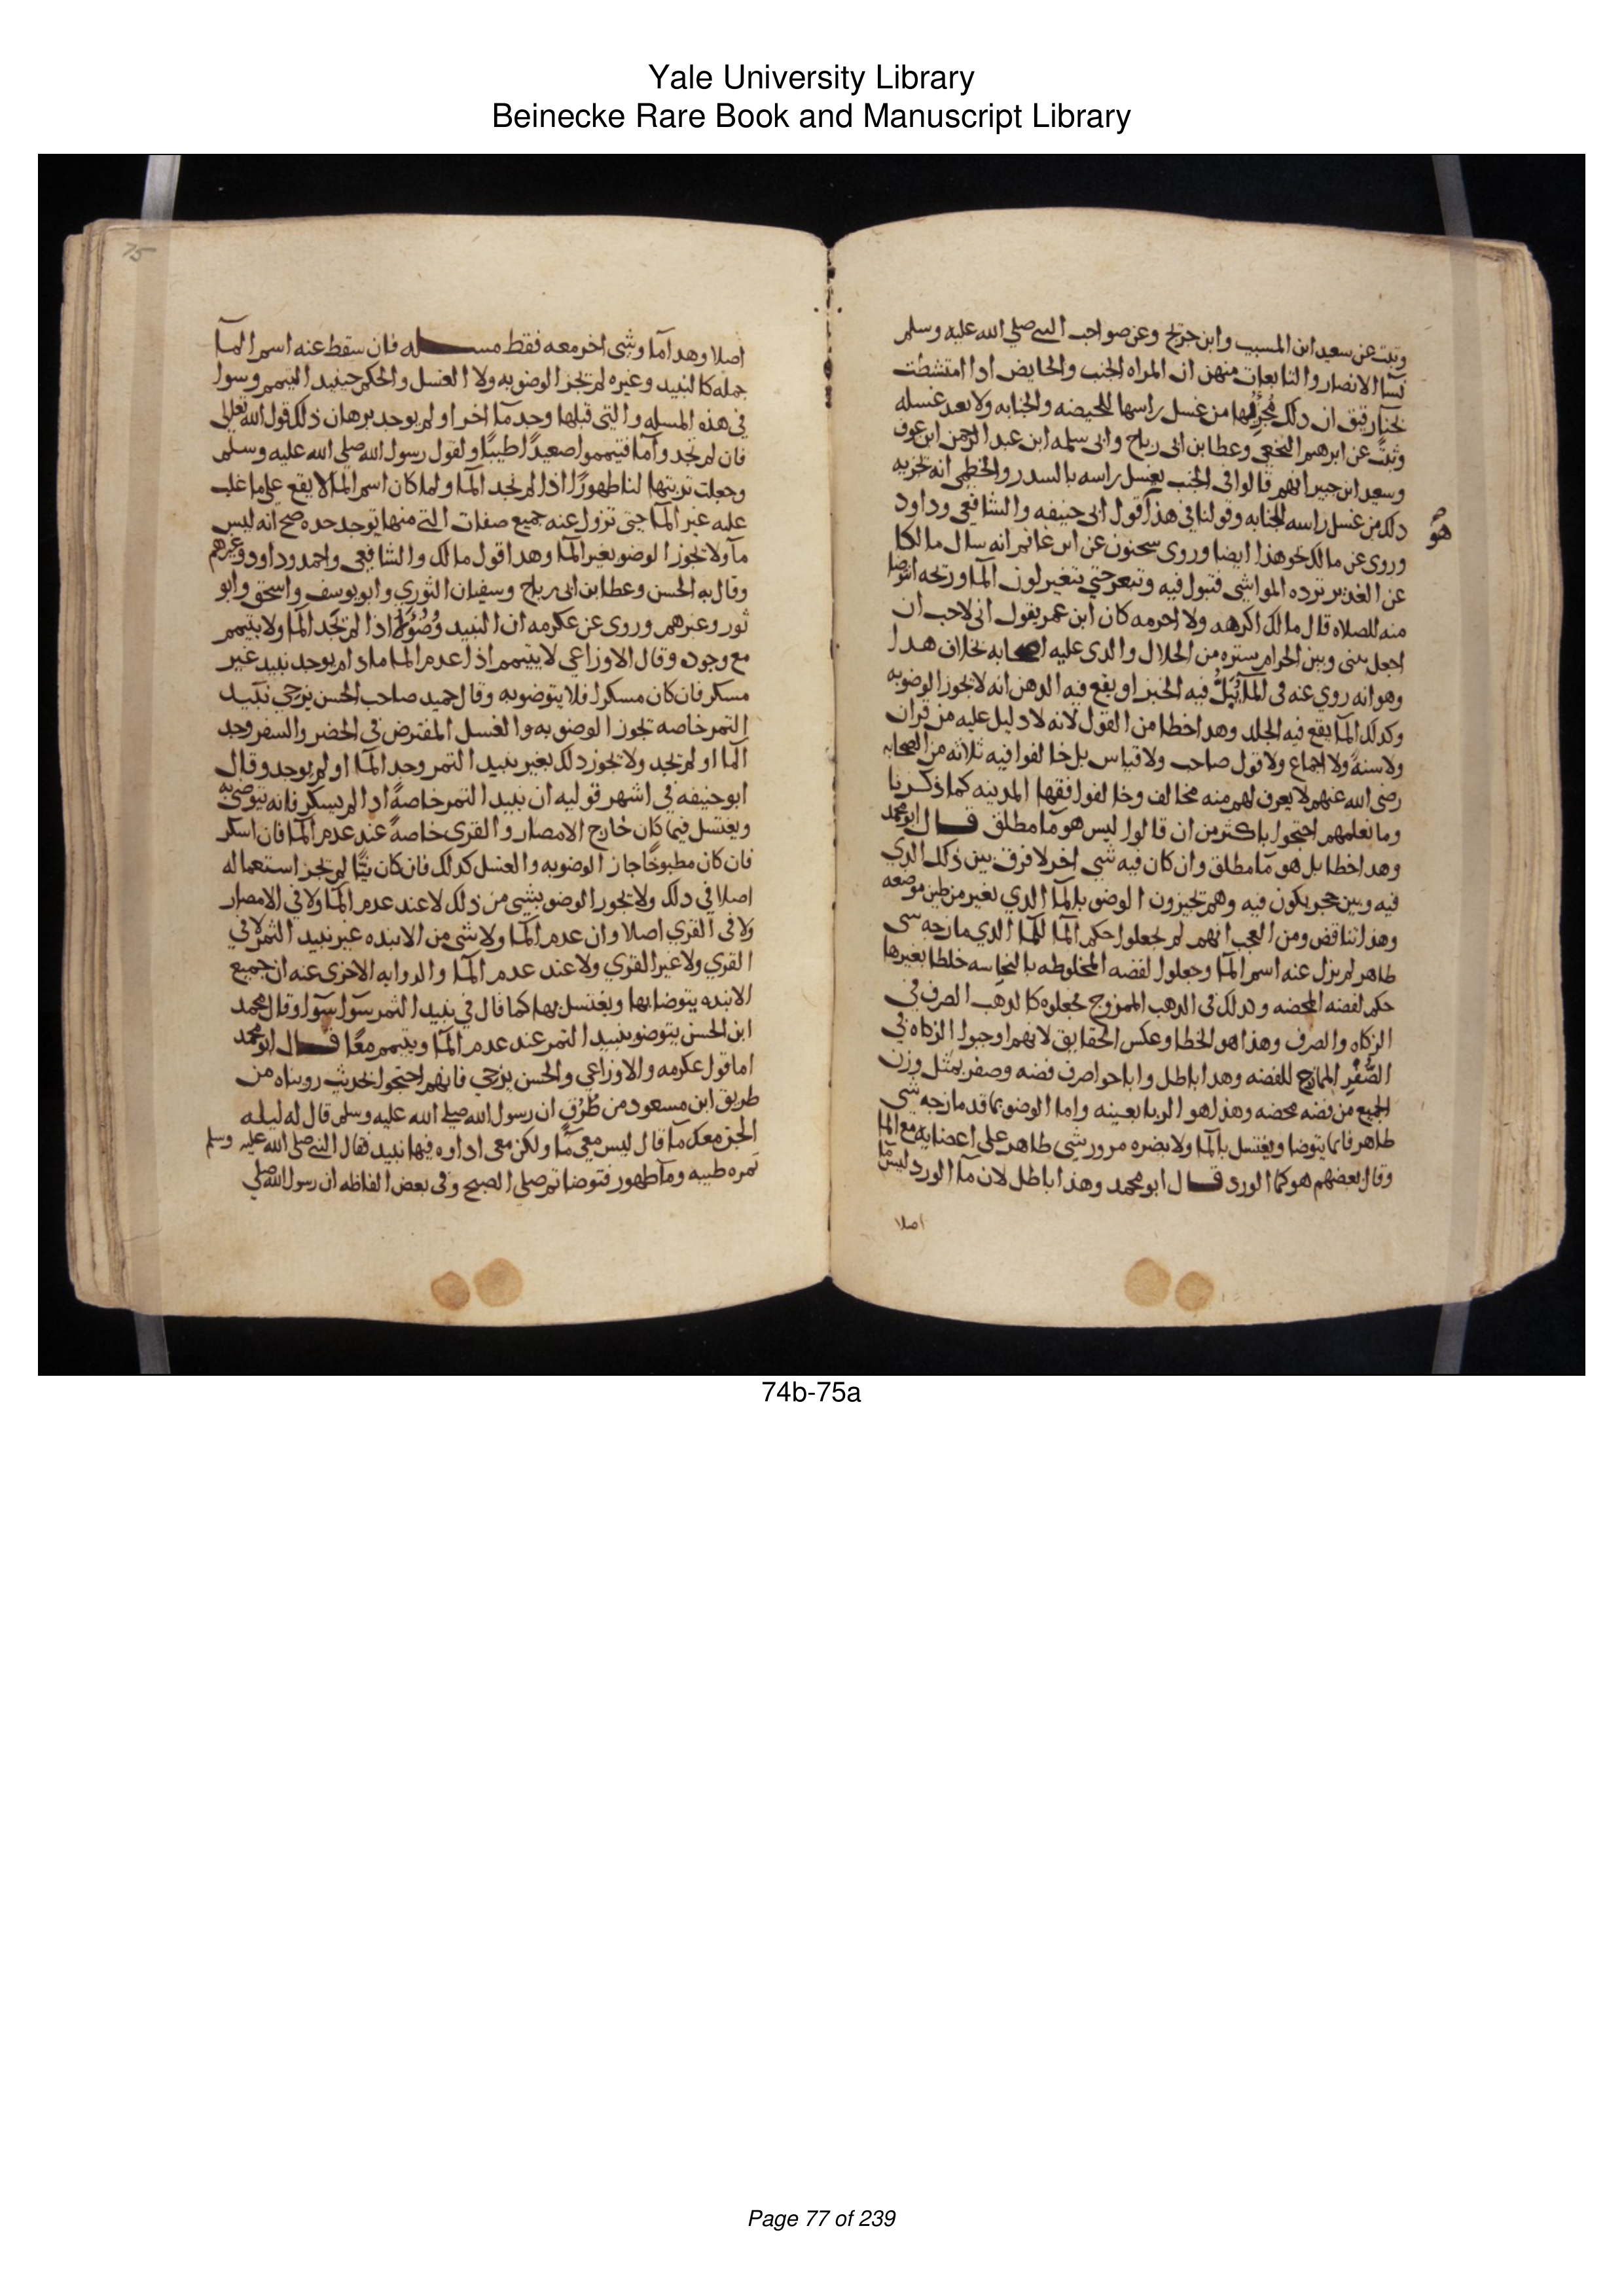 Yale University Library
Beinecke Rare Book and Manuscript Library
وثبت عن سعيد ابن المسيب وابن جريج وعن صواحب النبي صلي الله عليه وسلم
نسآ الانصار والتابعات منهن ان المراه الجنب والحايض اذا امتشطت
بحنا رقيق ان دلك يجزيها من غسل راسها للحيضه والجنابه ولا تعيد غسله
وثبت عن ابرهيم النخعي وعطا بن ابى رباح وابى سلمه ابن عبد الرحمن ابن عوف
وسعيد ابن جبير انهم قالوا فى الجنب يغسل راسه بالسدر والخطمى انه يجزيه
دلك من غسل راسه للجنابه وقولنا في هذا قول ابى حنيفه والشافعى وداود
هو
وروى عن مالك نحو هذا ايضا وروى سحنون عن ابن غانم انه سال مالكا
عن الغدير ترده المواشى فتبول فيه وتبعر حتي يتغير لون المآ وريحه اتوضا
منه للصلاه قال مالك اكرهه ولا احرمه كان ابن عمر يقول انى لاحب ان
اجعل بينى وبين الحرام ستره من الحلال والدى عليه اصحابه بخلاف هدا
وهو انه روي عنه فى المآ يُبَلُّ فيه الخبز او يقع فيه الدهن انه لا يجوز الوضو به
وكدلك المآ يقع فيه الجلد وهدا خطا من القول لانه لا دليل عليه من قران
ولا سنةٍ ولا اجماع ولا قول صاحب ولا قياس بل خالفوا فيه ثلاثه من الصحابه
رضى الله عنهم لا يعرف لهم منه مخالف وخالفوا فقها المدينه كما ذكرنا
وما نعلمهم احتجوا باكثر من ان قالوا ليس هو مآ مطلق قال ابو محمد
وهدا خطا بل هو مآ مطلق وان كان فيه شي اخر لا فرق بين ذلك الذي
فيه وبين حجر يكون فيه وهم يجيزون الوضو بالمآ الذي تغير من طين موضعه
وهذا تناقض ومن العجب انهم لم يجعلوا حكم المآ للمآ الذي مازجه شى
طاهر لم يزل عنه اسم المآ وجعلوا لفضه المخلوطه بالنحاسه خلطا بغيرها
حكم لفضه المحضه ودلك فى الدهب الممزوج فجعلوه كالدهب الصرف فى
الزكاه والصرف وهذا هو الخطا وعكس الحقايق لانهم اوجبوا الزكاه في
الصُّفْرِ الممازج للفضه وهدا باطل واباحوا صرف فضه وصفر بمثل وزن
الجميع من فضه محضه وهذا هو الربا بعينه واما الوضو بما قد مازجه شي
طاهر فانما يتوضا ويغتسل بالمآ ولا يضره مرور شى طاهر على اعضايه مع المآ
وقال بعضهم هو كمآ الورد قال ابو محمد وهذا باطل لان مآ الورد ليس مآ
اصلا
75
اصلا وهدا مآ وشى اخر معه فقط مسله فان سقط عنه اسم المآ
جمله كالنبيد وغيره لم يجز الوضو به ولا الغسل والحكم حينيد التيمم وسوا
فى هذه المسله والتى قبلها وجد مآ اخر او لم يوجد برهان ذلك قول الله تعالى
فان لم تجدوا مآ فتيمموا صعيدًا طيبًا ولقول رسول الله صلي الله عليه وسلم
وجعلت تربتها لنا طهورًا اذا لم نجد المآ ولما كان اسم المآ لا يقع علي ما غلب
عليه غير المآ حتى تزول عنه جميع صفات التى منها توجد حده صح انه ليس
مآ ولا يجوز الوضو بغير المآ وهدا قول مالك والشافعى واحمد وداود وغيرهم
وقال به الحسن وعطا بن ابى رباح وسفيان الثوري وابو يوسف واسحق وابو
ثور وغيرهم وروى عن عكرمه ان النبيد وُضُوٌ اذا لم يَجُد المآ ولا يتيمم
مع وجوده وقال الاوزاعي لا يتيمم اذا عدم المآ مادام يوجد نبيد غير
مسكر فان كان مسكرا فلا يتوضو به وقال حميد صاحب الحسن بن حي نبيد
التمر خاصه يجوز الوضو به والغسل المفترض فى الحضر والسفر وجد
المآ او لم يجد ولا يجوز دلك بغير نبيد التمر وجد المآ او لم يوجد وقال
ابو حنيفه في اشهر قوليه ان نبيد التمر خاصةً ادا لم يسكر فانه يتوضى به
ويغتسل فيما كان خارج الامصار والقرى خاصةً عند عدم المآ فان اسكر
فان كان مطبوخًا جاز الوضو به والغسل كدلك فان كان نيًّا لم يجز استعماله
اصلا في دلك ولا يجوز الوضو بشى من ذلك لا عند عدم المآ ولا في الامصار
ولا فى القري اصلا وان عدم المآ ولا شى من الانبده غير نبيد التمر لا في
القري ولا غير القري ولا عند عدم المآ والروايه الاخرى عنه ان جميع
الانبده يتوضا بها ويغتسل بها كما قال في نبيد التمر سوآ سوآ وقال محمد
ابن الحسن يتوضو بنبيد التمر عند عدم المآ ويتيمم معًا قال ابو محمد
اما قول عكرمه والاوزاعي والحسن بن حي فانهم احتجوا بحديث رويناه من
طريق ابن مسعود من طُرُقٍ ان رسول الله صلي الله عليه وسلم قال له ليله
الجن معك مآ قال ليس معي مآ ولكن معى اداوه فيها نبيد فقال النبي صلي الله عليه وسلم
تمره طيبه ومآ طهور فتوضا ثم صلي الصبح وفى بعض الفاظه ان رسول الله صلي
74b-75a
Page 77 of 239